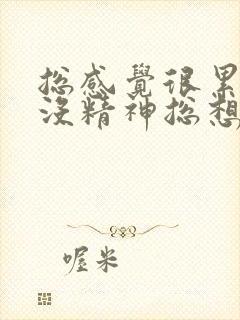 總感覺很累
沒精神總想
喔米